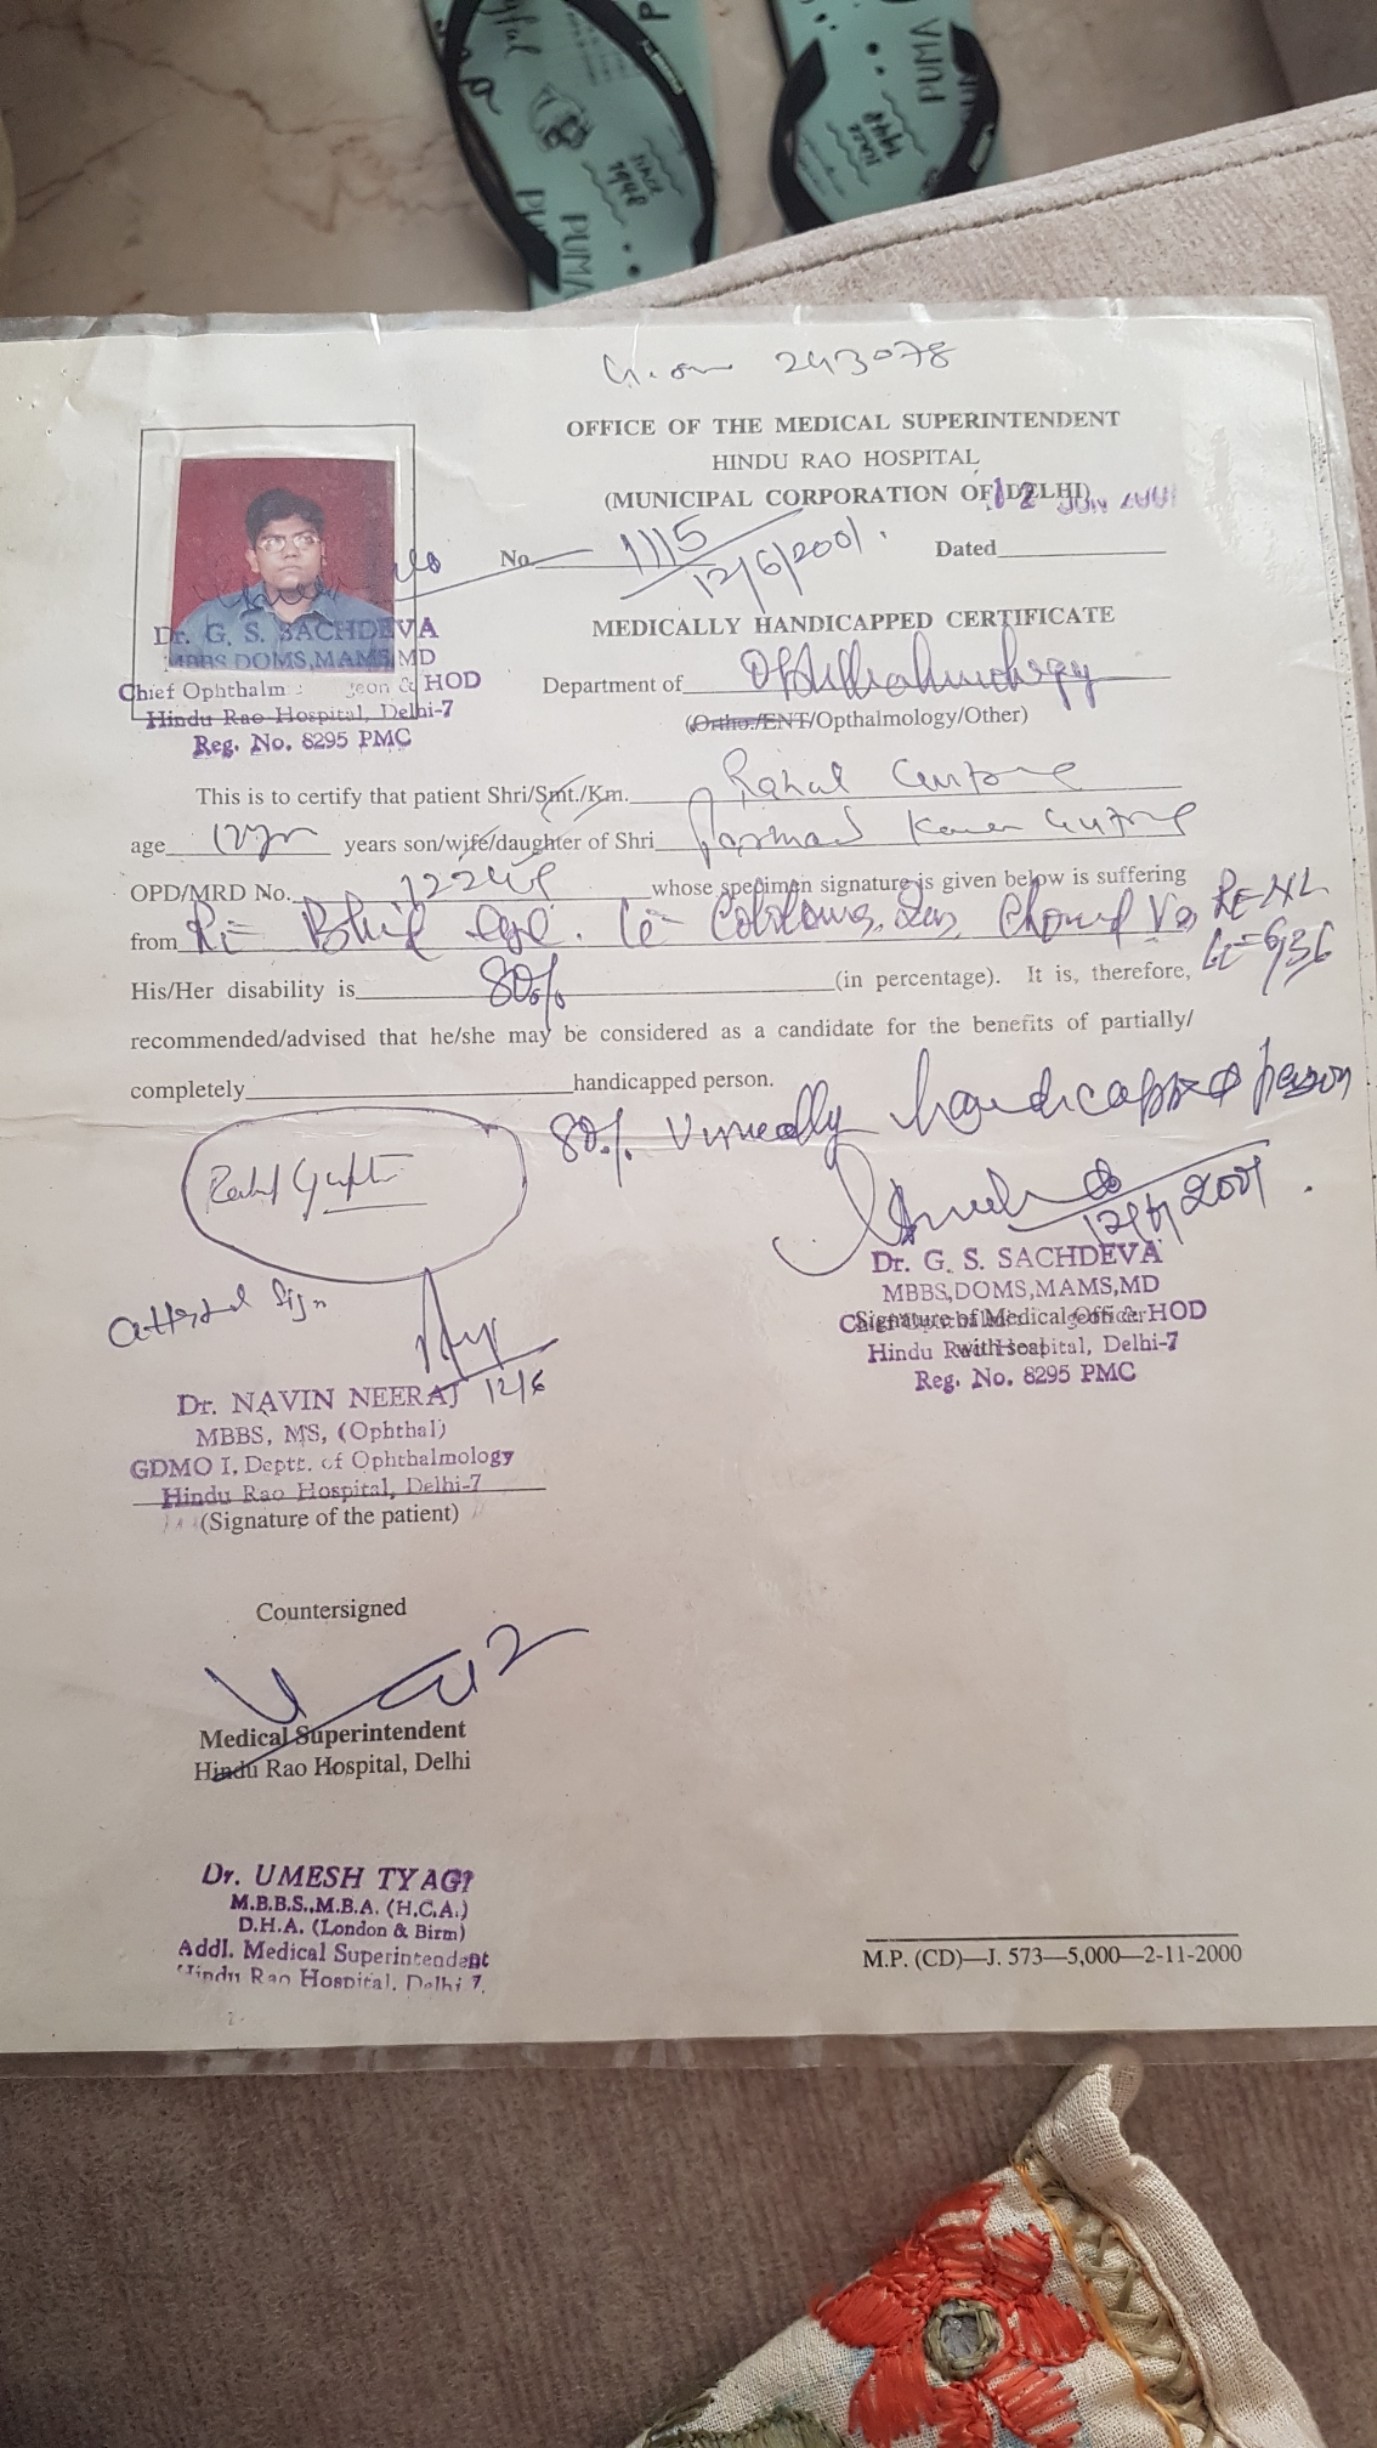 PUMA
since
1948
PUMA
since
1948
243078
OFFICE OF THE MEDICAL SUPERINTENDENT
HINDU RAO HOSPITAL
(MUNICIPAL CORPORATION OF DELHI)
12 JUN 2001
No. 1115
12/6/2001.
Dated
MEDICALLY HANDICAPPED CERTIFICATE
Dr. G. S. SACHDEVA
MBBS DOMS, MAMS, MD
Chief Ophthalm eon & HOD
Hindu Rao Hospital, Delhi-7
Reg. No. 8295 PMC
Department of Ophthalmology
(Ortho./ENT/Opthalmology/Other)
This is to certify that patient Shri/Smt./Km. Rahul Gupta
age years son/wife/daughter of Shri Parmod Kumar Gupta
OPD/MRD No. whose specimen signature is given below is suffering
from RE= Blind eye. LE= Coloboma RE-NL
LE=6/36
His/Her disability is 80% (in percentage). It is, therefore,
recommended/advised that he/she may be considered as a candidate for the benefits of partially/
completely handicapped person.
80% Visually handicapped person
Rahul Gupta
12/6/2001.
Dr. G. S. SACHDEVA
MBBS, DOMS, MAMS, MD
Signature of Medical Officer HOD
with seal
Hindu Rao Hospital, Delhi-7
Reg. No. 8295 PMC
Attested Sign
12/6
Dr. NAVIN NEERAJ
MBBS, MS, (Ophthal)
GDMO I, Deptt. of Ophthalmology
Hindu Rao Hospital, Delhi-7
(Signature of the patient)
Countersigned
Medical Superintendent
Hindu Rao Hospital, Delhi
Dr. UMESH TYAGI
M.B.B.S., M.B.A. (H.C.A.)
D.H.A. (London & Birm)
Addl. Medical Superintendent
Hindu Rao Hospital, Delhi 7.
M.P. (CD)—J. 573—5,000—2-11-2000